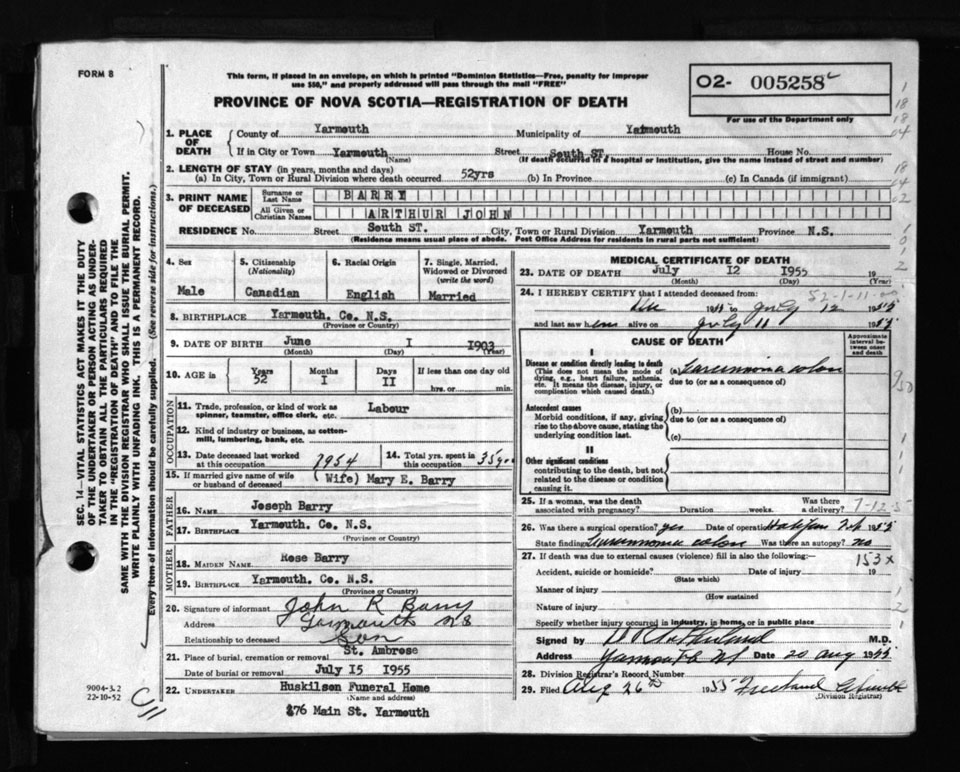 FORM 8
This form, if placed in an envelope, on which is printed "Dominion Statistics—Free, penalty for improper
use $50," and properly addressed will pass through the mail "FREE"
PROVINCE OF NOVA SCOTIA—REGISTRATION OF DEATH
O2- 005258
For use of the Department only
1. PLACE OF DEATH
County of Yarmouth Municipality of Yarmouth
If in City or Town Yarmouth Street South ST. House No.
(Name) (If death occurred in a hospital or institution, give the name instead of street and number)
2. LENGTH OF STAY (in years, months and days)
(a) In City, Town or Rural Division where death occurred 52yrs (b) In Province (c) In Canada (if immigrant)
3. PRINT NAME OF DECEASED
Surname or Last Name BARRY
All Given or Christian Names ARTHUR JOHN
RESIDENCE No. Street South ST. City, Town or Rural Division Yarmouth Province N.S.
(Residence means usual place of abode. Post Office Address for residents in rural parts not sufficient)
4. Sex
Male
5. Citizenship (Nationality)
Canadian
6. Racial Origin
English
7. Single, Married, Widowed or Divorced (write the word)
Married
8. BIRTHPLACE Yarmouth. Co. N.S.
(Province or Country)
9. DATE OF BIRTH June I 1903
(Month) (Day) (Year)
10. AGE in Years 52 Months I Days II If less than one day old
hrs. or min.
OCCUPATION
11. Trade, profession, or kind of work as spinner, teamster, office clerk, etc. Labour
12. Kind of industry or business, as cotton-mill, lumbering, bank, etc.
13. Date deceased last worked at this occupation 1954
14. Total yrs. spent in this occupation 35 yrs
15. If married give name of wife or husband of deceased (Wife) Mary E. Barry
FATHER
16. Name Joseph Barry
17. Birthplace Yarmouth. Co. N.S.
(Province or Country)
MOTHER
18. Maiden Name Rose Barry
19. Birthplace Yarmouth. Co. N.S.
(Province or Country)
20. Signature of informant John R Barry
Address Yarmouth NS
Relationship to deceased Son
21. Place of burial, cremation or removal St. Ambrose
Date of burial or removal July I5 1955
22. UNDERTAKER Huskilson Funeral Home
(Name and address)
276 Main St. Yarmouth
MEDICAL CERTIFICATE OF DEATH
23. DATE OF DEATH July I2 I955 19
(Month) (Day) (Year)
24. I HEREBY CERTIFY that I attended deceased from:
to July 12 1955
and last saw him alive on July 11 1955
CAUSE OF DEATH
Approximate interval between onset and death
I
Disease or condition directly leading to death
(This does not mean the mode of dying, e.g., heart failure, asthenia, etc. It means the disease, injury, or complication which caused death.)
(a) Carcinoma colon
due to (or as a consequence of)
Antecedent causes
Morbid conditions, if any, giving rise to the above cause, stating the underlying condition last.
(b)
due to (or as a consequence of)
(c)
II
Other significant conditions
contributing to the death, but not related to the disease or condition causing it.
25. If a woman, was the death associated with pregnancy? Duration weeks. Was there a delivery?
26. Was there a surgical operation? yes Date of operation Halifax 1955
State findings Carcinoma colon Was there an autopsy? no
27. If death was due to external causes (violence) fill in also the following:—
153x
Accident, suicide or homicide? Date of injury 19
(State which)
Manner of injury
(How sustained
Nature of injury
Specify whether injury occurred in industry, in home, or in public place
Signed by M.D.
Address Yarmouth NS Date 20 Aug 1955
28. Division Registrar's Record Number
29. Filed Aug 26th 1955
(Division Registrar)
SEC. 14—VITAL STATISTICS ACT MAKES IT THE DUTY
OF THE UNDERTAKER OR PERSON ACTING AS UNDER-
TAKER TO OBTAIN ALL THE PARTICULARS REQUIRED
IN THE "REGISTRATION OF DEATH" AND TO FILE THE
SAME WITH THE DIVISION REGISTRAR WHO SHALL ISSUE THE BURIAL PERMIT.
WRITE PLAINLY WITH UNFADING INK. THIS IS A PERMANENT RECORD.
Every item of information should be carefully supplied. (See reverse side for instructions.)
9004-3.2
22-10-52